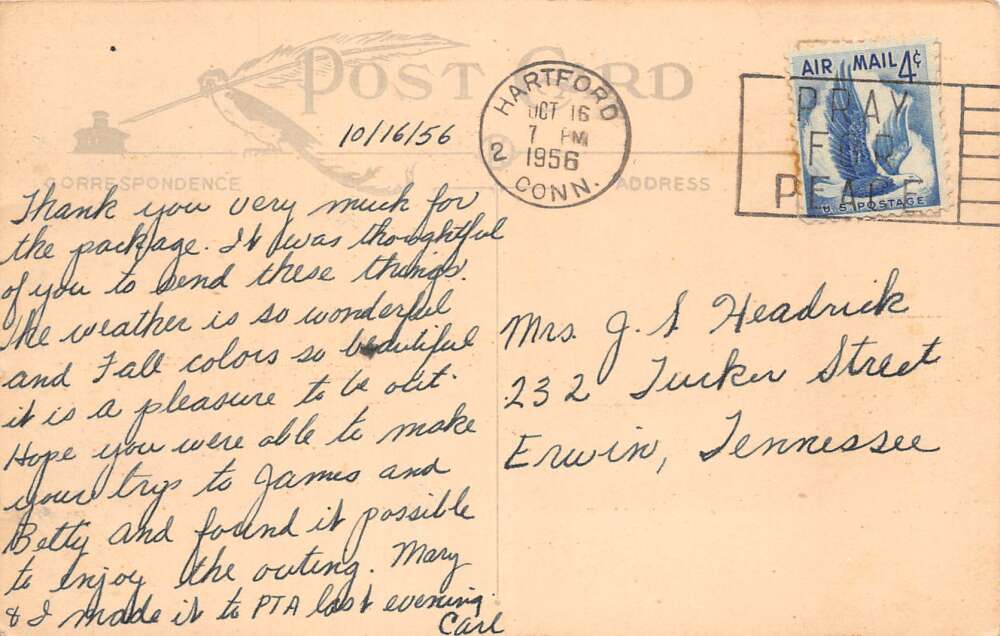 POST CARD
10/16/56
HARTFORD
OCT 16
7 PM
1956
2
CONN.
AIR MAIL 4¢
U.S. POSTAGE
PRAY
FOR
PEACE
CORRESPONDENCE
ADDRESS
Thank you very much for
the package. It was thoughtful
of you to send these things.
The weather is so wonderful
and Fall colors so beautiful
it is a pleasure to be out.
Hope you were able to make
your trip to James and
Betty and found it possible
to enjoy the outing. Mary
& I made it to PTA last evening.
Carl
Mrs. J. S Headrick
232 Tucker Street
Erwin, Tennessee